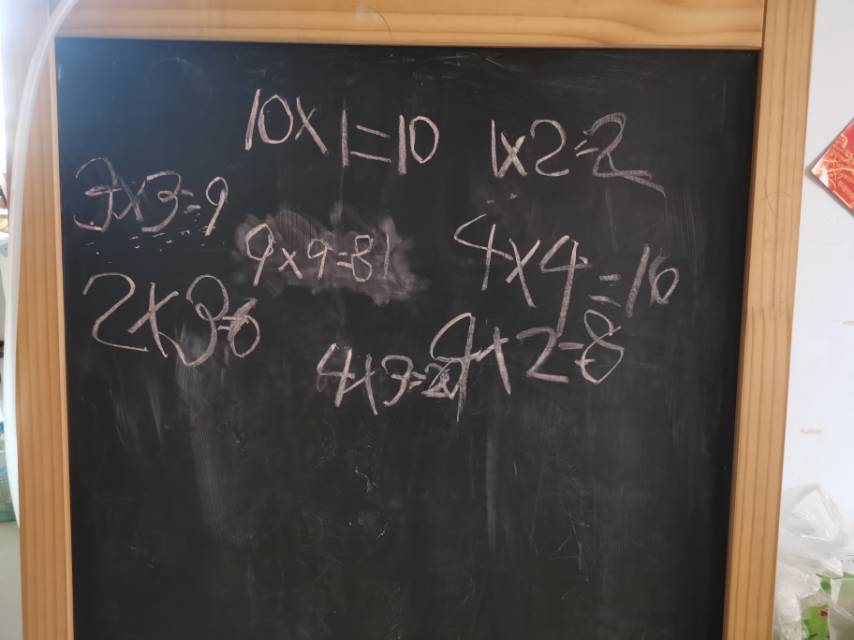 10×1=10
1×2=2
3×3=9
9×9=81
4×4=16
2×3=6
4×3=
4×2=8